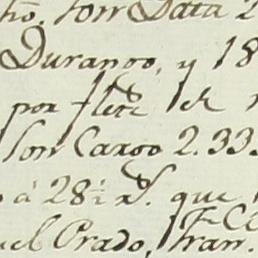 Son Data 2
Durango, y 18
por flete de
Son Cargo 2.33
á 28½ rs. que
el Prado, Fran.